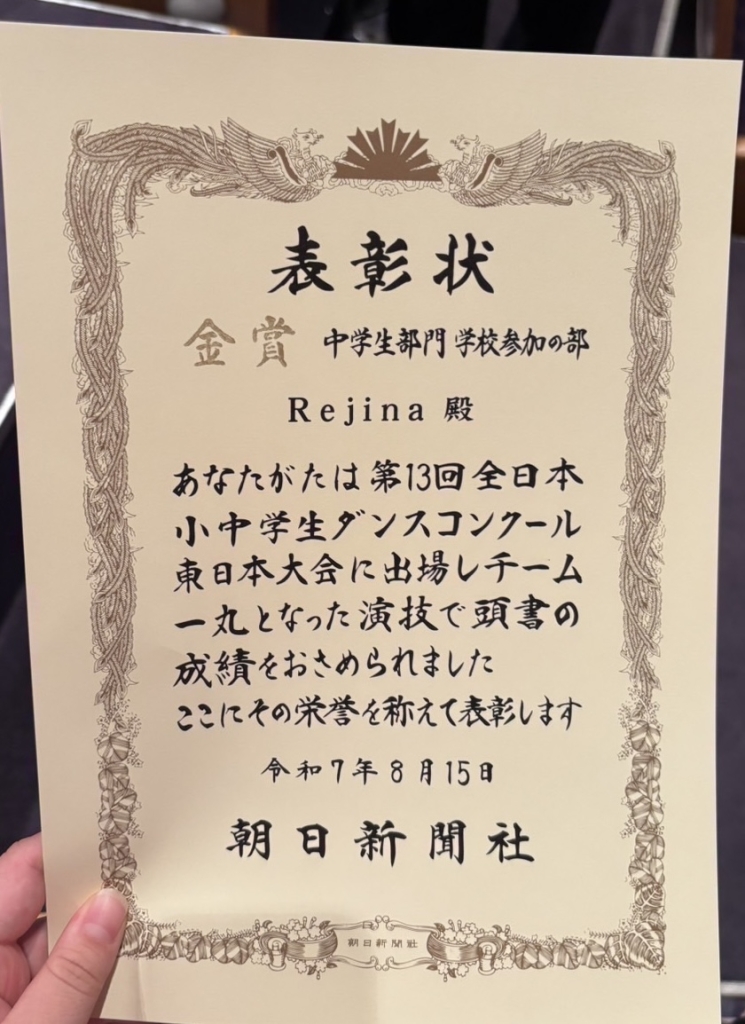 表彰状
金賞 中学生部門 学校参加の部
Rejina 殿
あなたがたは第13回全日本
小中学生ダンスコンクール
東日本大会に出場しチーム
一丸となった演技で頭書の
成績をおさめられました
ここにその栄誉を称えて表彰します
令和7年8月15日
朝日新聞社
朝日新聞社